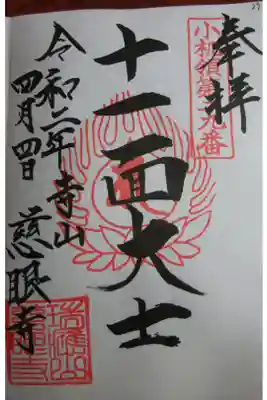 奉拝
小机領第九番
十一面大士
寺山 慈眼寺
令和二年
四月四日